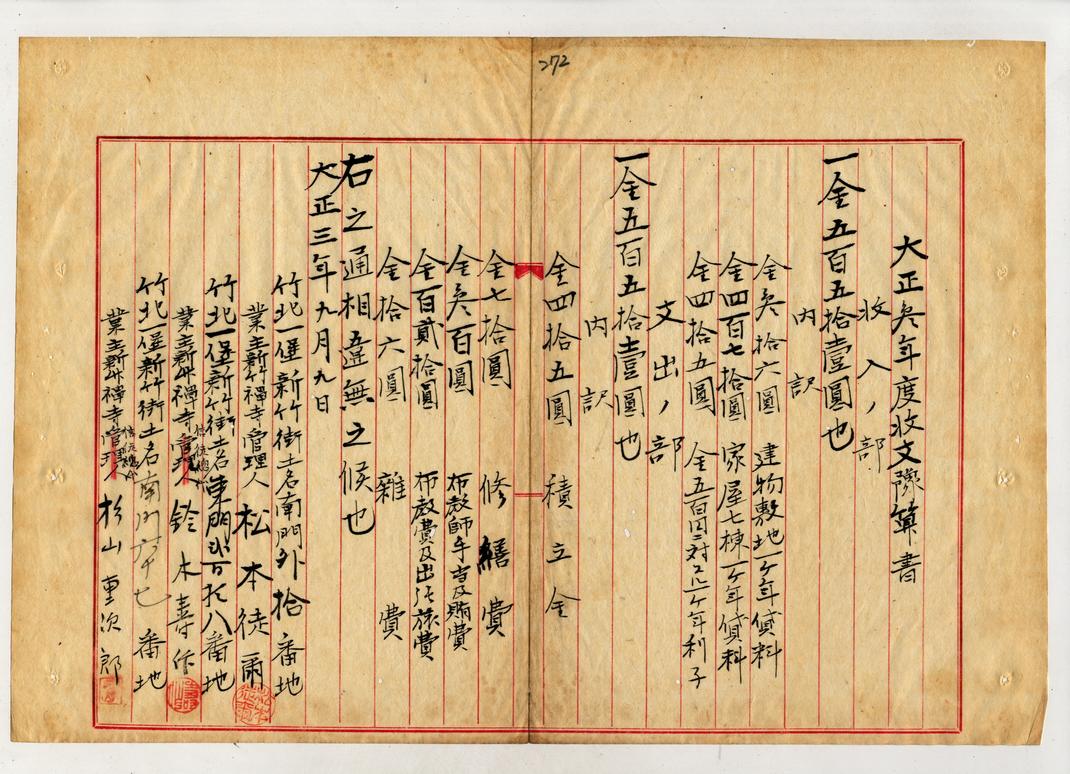 272
大正叄年度收支豫算書
收入ノ部
一金五百五拾壹圓也
內訳
金叄拾六圓 建物敷地一ヶ年貸料
金四百七拾圓 家屋七棟一ヶ年貸料
金四拾五圓 金五百円ニ対スル一ヶ年利子
支出ノ部
一金五百五拾壹圓也
內訳
金四拾五圓 積立金
金七拾圓 修繕費
金叄百圓 布教師手当及賄費
金百貳拾圓 布教費及出張旅費
金拾六圓 雜費
右之通相違無之候也
大正三年九月九日
竹北一堡新竹街土名南門外拾番地
業主新竹禪寺管理人 松本徒爾
竹北一堡新竹街土名東門 百拾八番地
業主新竹禪寺管理人 信徒總代 鈴木壽作
竹北一堡新竹街土名南門 番地
業主新竹禪寺管理人 信徒總代 杉山重次郎